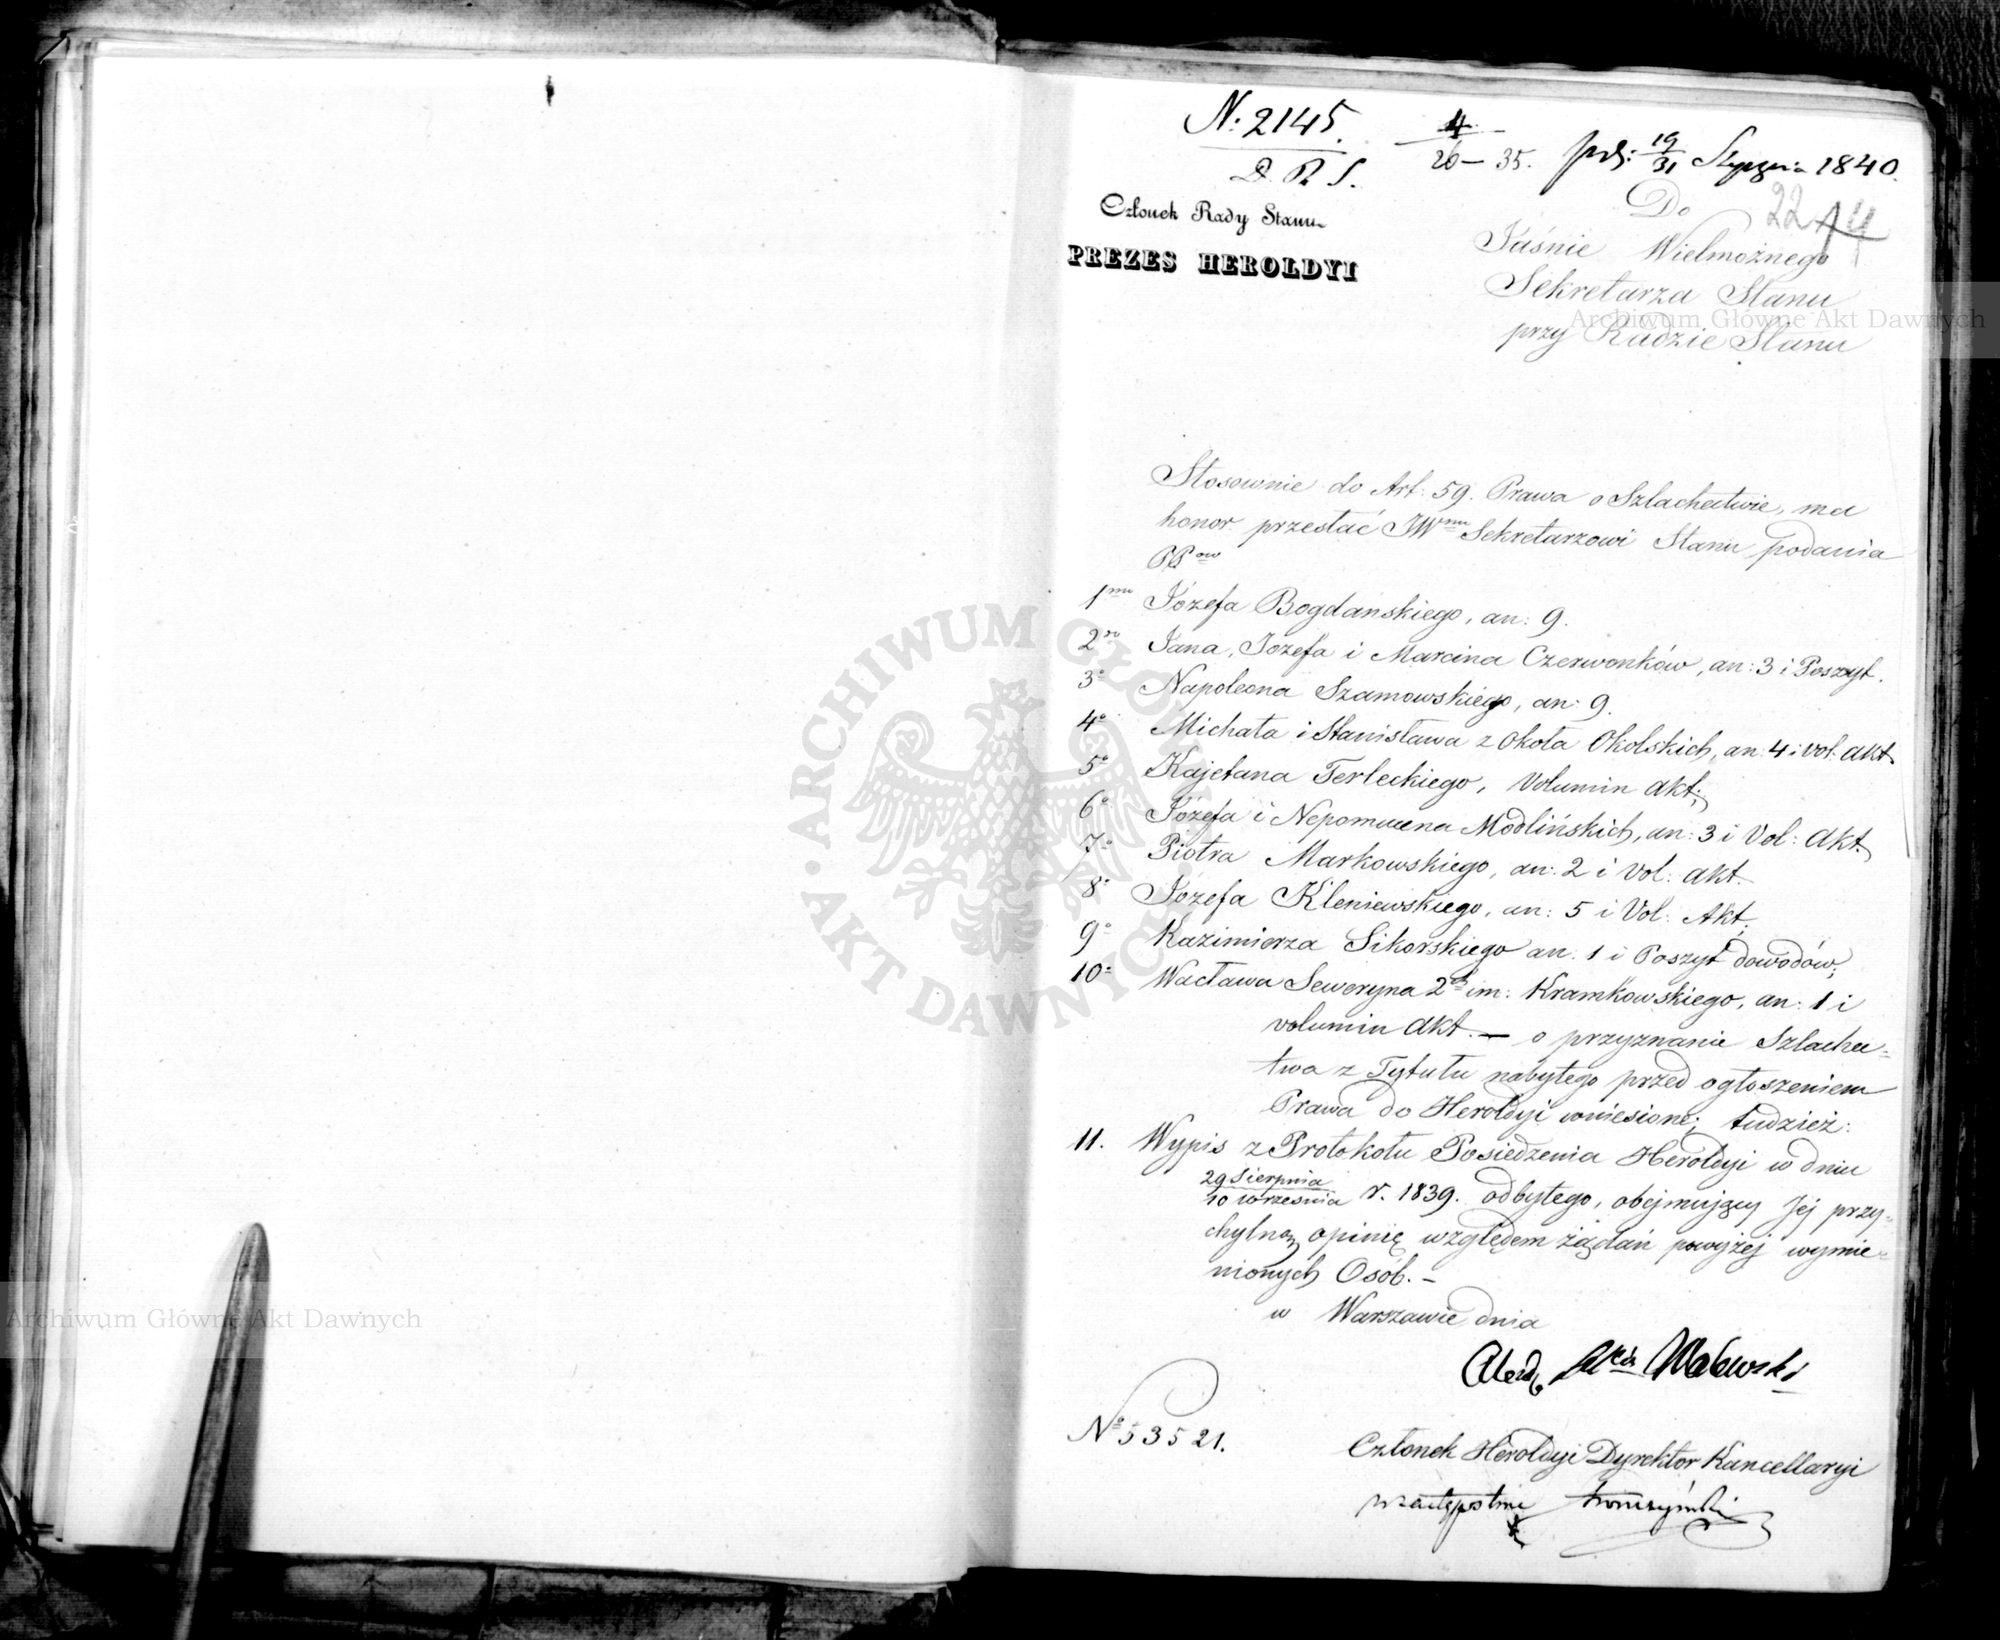 N: 2145.
D. R. S.
4
26 – 35.
19
31 Stycznia 1840.
22 14
Członek Rady Stanu
PREZES HEROLDYI
Do
Jaśnie Wielmożnego
Sekretarza Stanu
przy Radzie Stanu
Stosownie do Art: 59. Prawa o Szlachectwie, ma
honor przesłać JWmu Sekretarzowi Stanu podania
PPow
1mo Józefa Bogdańskiego, an: 9.
2do Jana, Józefa i Marcina Czerwonków, an: 3 i Poszyt.
3o Napoleona Szamowskiego, an: 9.
4o Michała i Stanisława z Okoła Okolskich, an: 4 i vol: akt
5o Kajetana Terleckiego, Volumin akt;
6o Józefa i Nepomucena Modlińskich, an: 3 i Vol: akt.
7o Piotra Markowskiego, an: 2 i vol: akt.
8o Józefa Kleniewskiego, an: 5 i Vol: Akt.
9o Kazimierza Sikorskiego an: 1 i Poszyt dowodów;
10o Wacława Seweryna 2ch im: Kramkowskiego, an: 1 i
volumin akt. — o przyznanie Szlachec=
twa z Tytułu nabytego przed ogłoszeniem
Prawa do Heroldyi wniesione; tudzież:
11. Wypis z Protokołu Posiedzenia Heroldyi w dniu
29 Sierpnia
10 Września r. 1839. odbytego, obejmujący Jej przy=
chylną opinię względem żądań powyżej wymie=
nionych Osób. –
w Warszawie dnia
Walewski
No 53521.
Członek Heroldyi Dyrektor Kancellaryi
w zastępstwie
Archiwum Główne Akt Dawnych
Archiwum Główne Akt Dawnych
ARCHIWUM GŁÓWNE AKT DAWNYCH